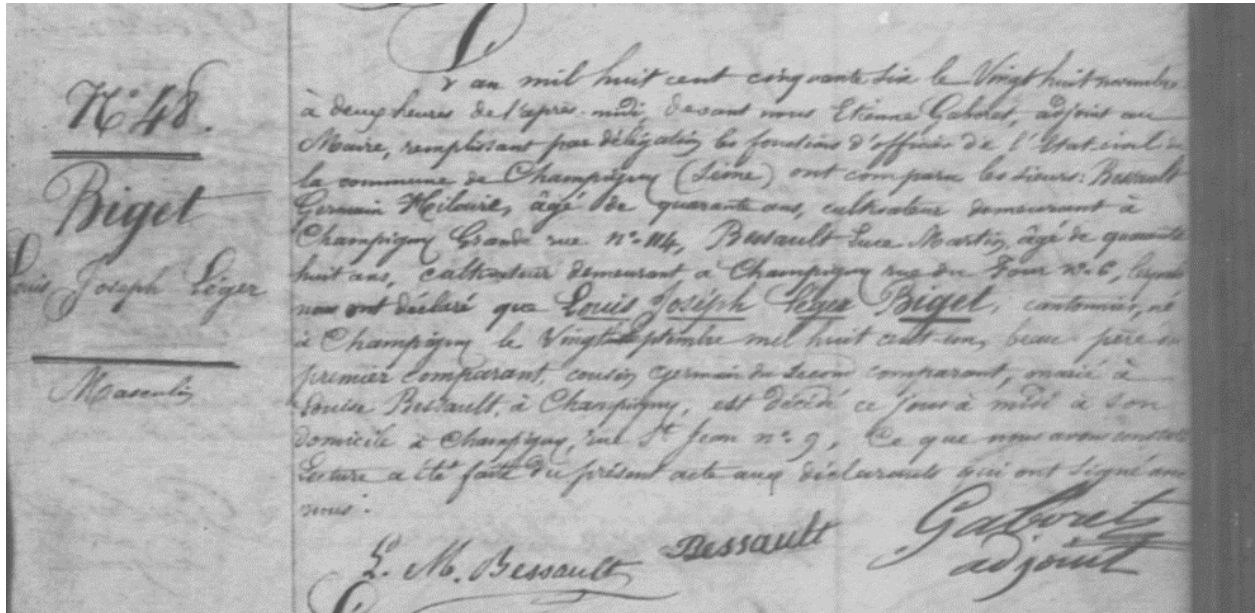 N° 48.
Biget
Louis Joseph Léger
Masculin
L'an mil huit cent cinquante six le Vingt huit novembre
à deux heures de l'après-midi, devant nous Etienne Gaboret, adjoint au
Maire, remplissant par délégation les fonctions d'officier de l'Etat-civil de
la commune de Champigny (Seine) ont comparu les sieurs: Bessault
Germain Hilaire, âgé de quarante ans, cultivateur demeurant à
Champigny Grande rue n° 114, Bessault Luce Martin, âgé de quarante
huit ans, cultivateur demeurant à Champigny rue du Four n° 6, lesquels
nous ont déclaré que Louis Joseph Léger Biget, cantonnier, né
à Champigny le Vingt septembre mil huit cent un, beau-père du
premier comparant, cousin germain du second comparant, marié à
Louise Bessault, à Champigny, est décédé ce jour à midi à son
domicile à Champigny, rue St Jean n° 9, Ce que nous avons constaté
Lecture a été faite du présent acte aux déclarants qui ont signé avec
nous.
L. M. Bessault
Bessault
Gaboret
adjoint